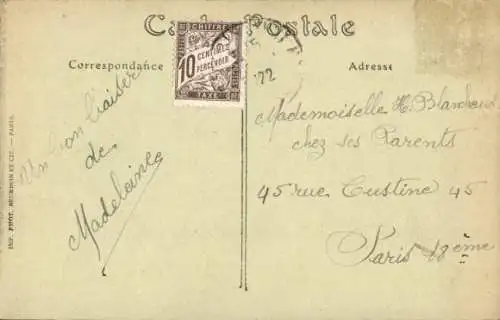 Carte Postale
Correspondance
Adresse
CHIFFRE
10
CENTIMES
À
PERCEVOIR
TAXE
72
Un bon baiser
de
Madeleine
Mademoiselle H. Blancheu
chez ses Parents
45 rue Custine 45
Paris 18ème
IMP. PHOT. NEURDEIN ET CIE. — PARIS.